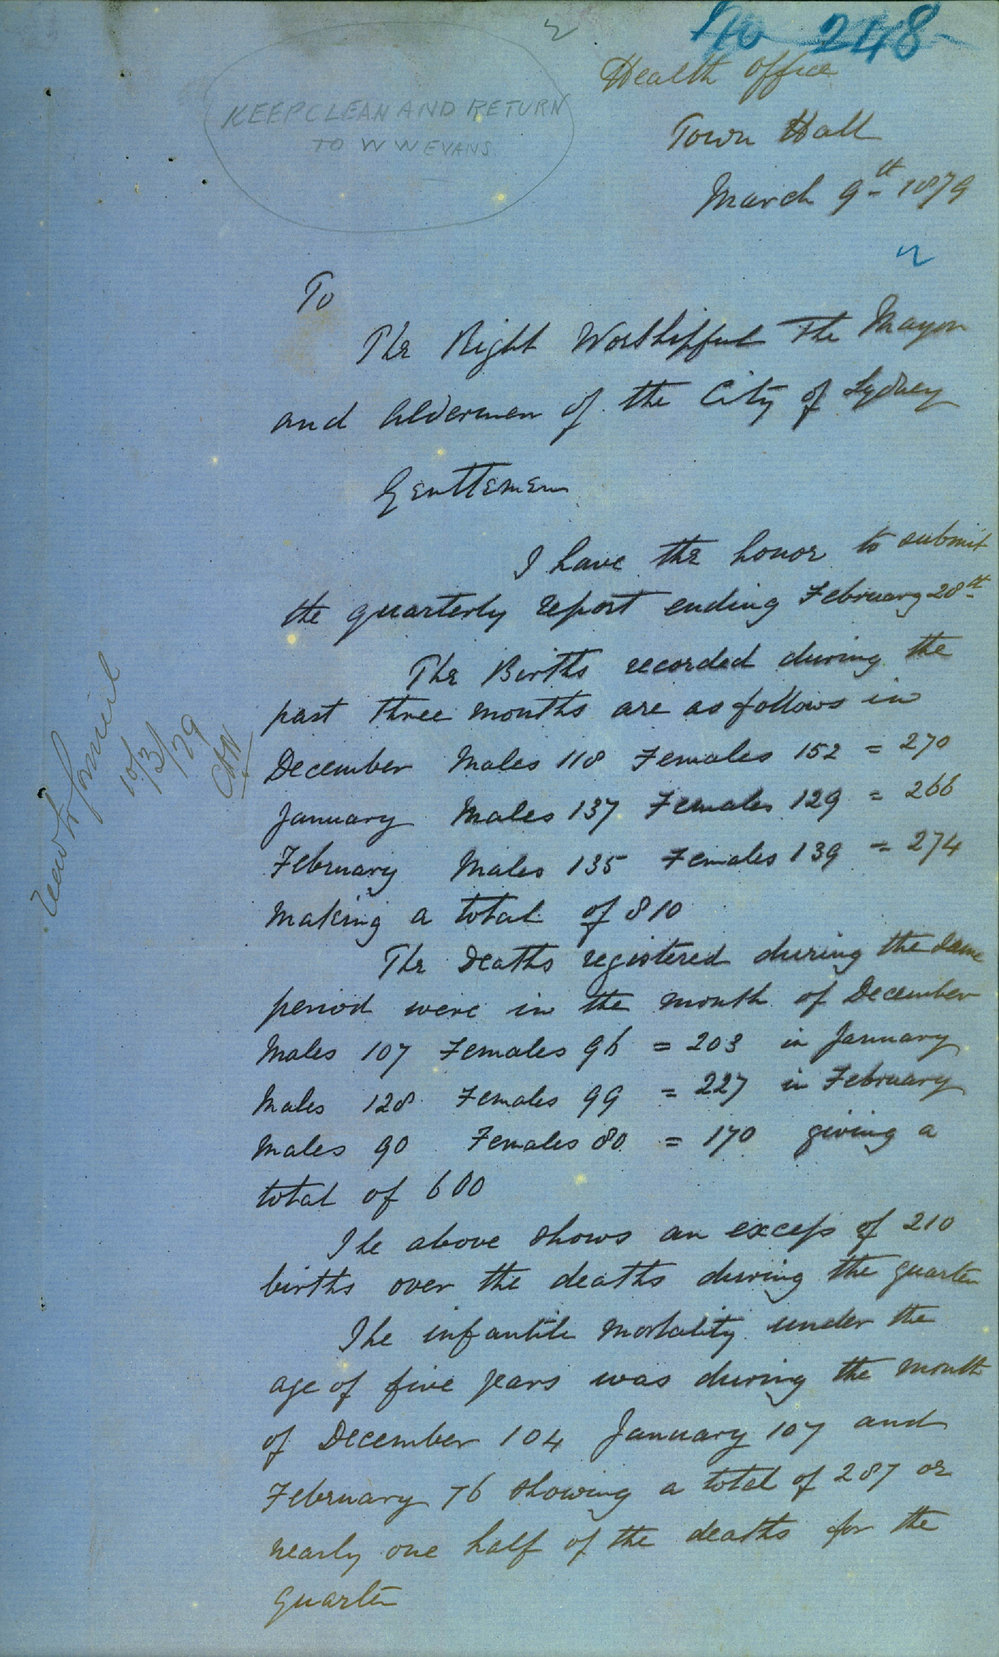 No 248
Health Office
KEEP CLEAN AND RETURN
TO W W EVANS
Town Hall
March 9th 1879
To
The Right Worshipful The Mayor
and Aldermen of the City of Sydney
Gentlemen
I have the honor to submit
the quarterly report ending February 28th
The Births recorded during the
past three months are as follows in
December Males 118 Females 152 = 270
January Males 137 Females 129 = 266
February Males 135 Females 139 = 274
making a total of 810
The Deaths registered during the same
period were in the month of December
Males 107 Females 96 = 203 in January
Males 128 Females 99 = 227 in February
Males 90 Females 80 = 170 giving a
total of 600
The above shows an excess of 210
births over the deaths during the quarter
The infantile mortality under the
age of five years was during the month
of December 104 January 107 and
February 76 showing a total of 287 or
nearly one half of the deaths for the
quarter
10/3/79